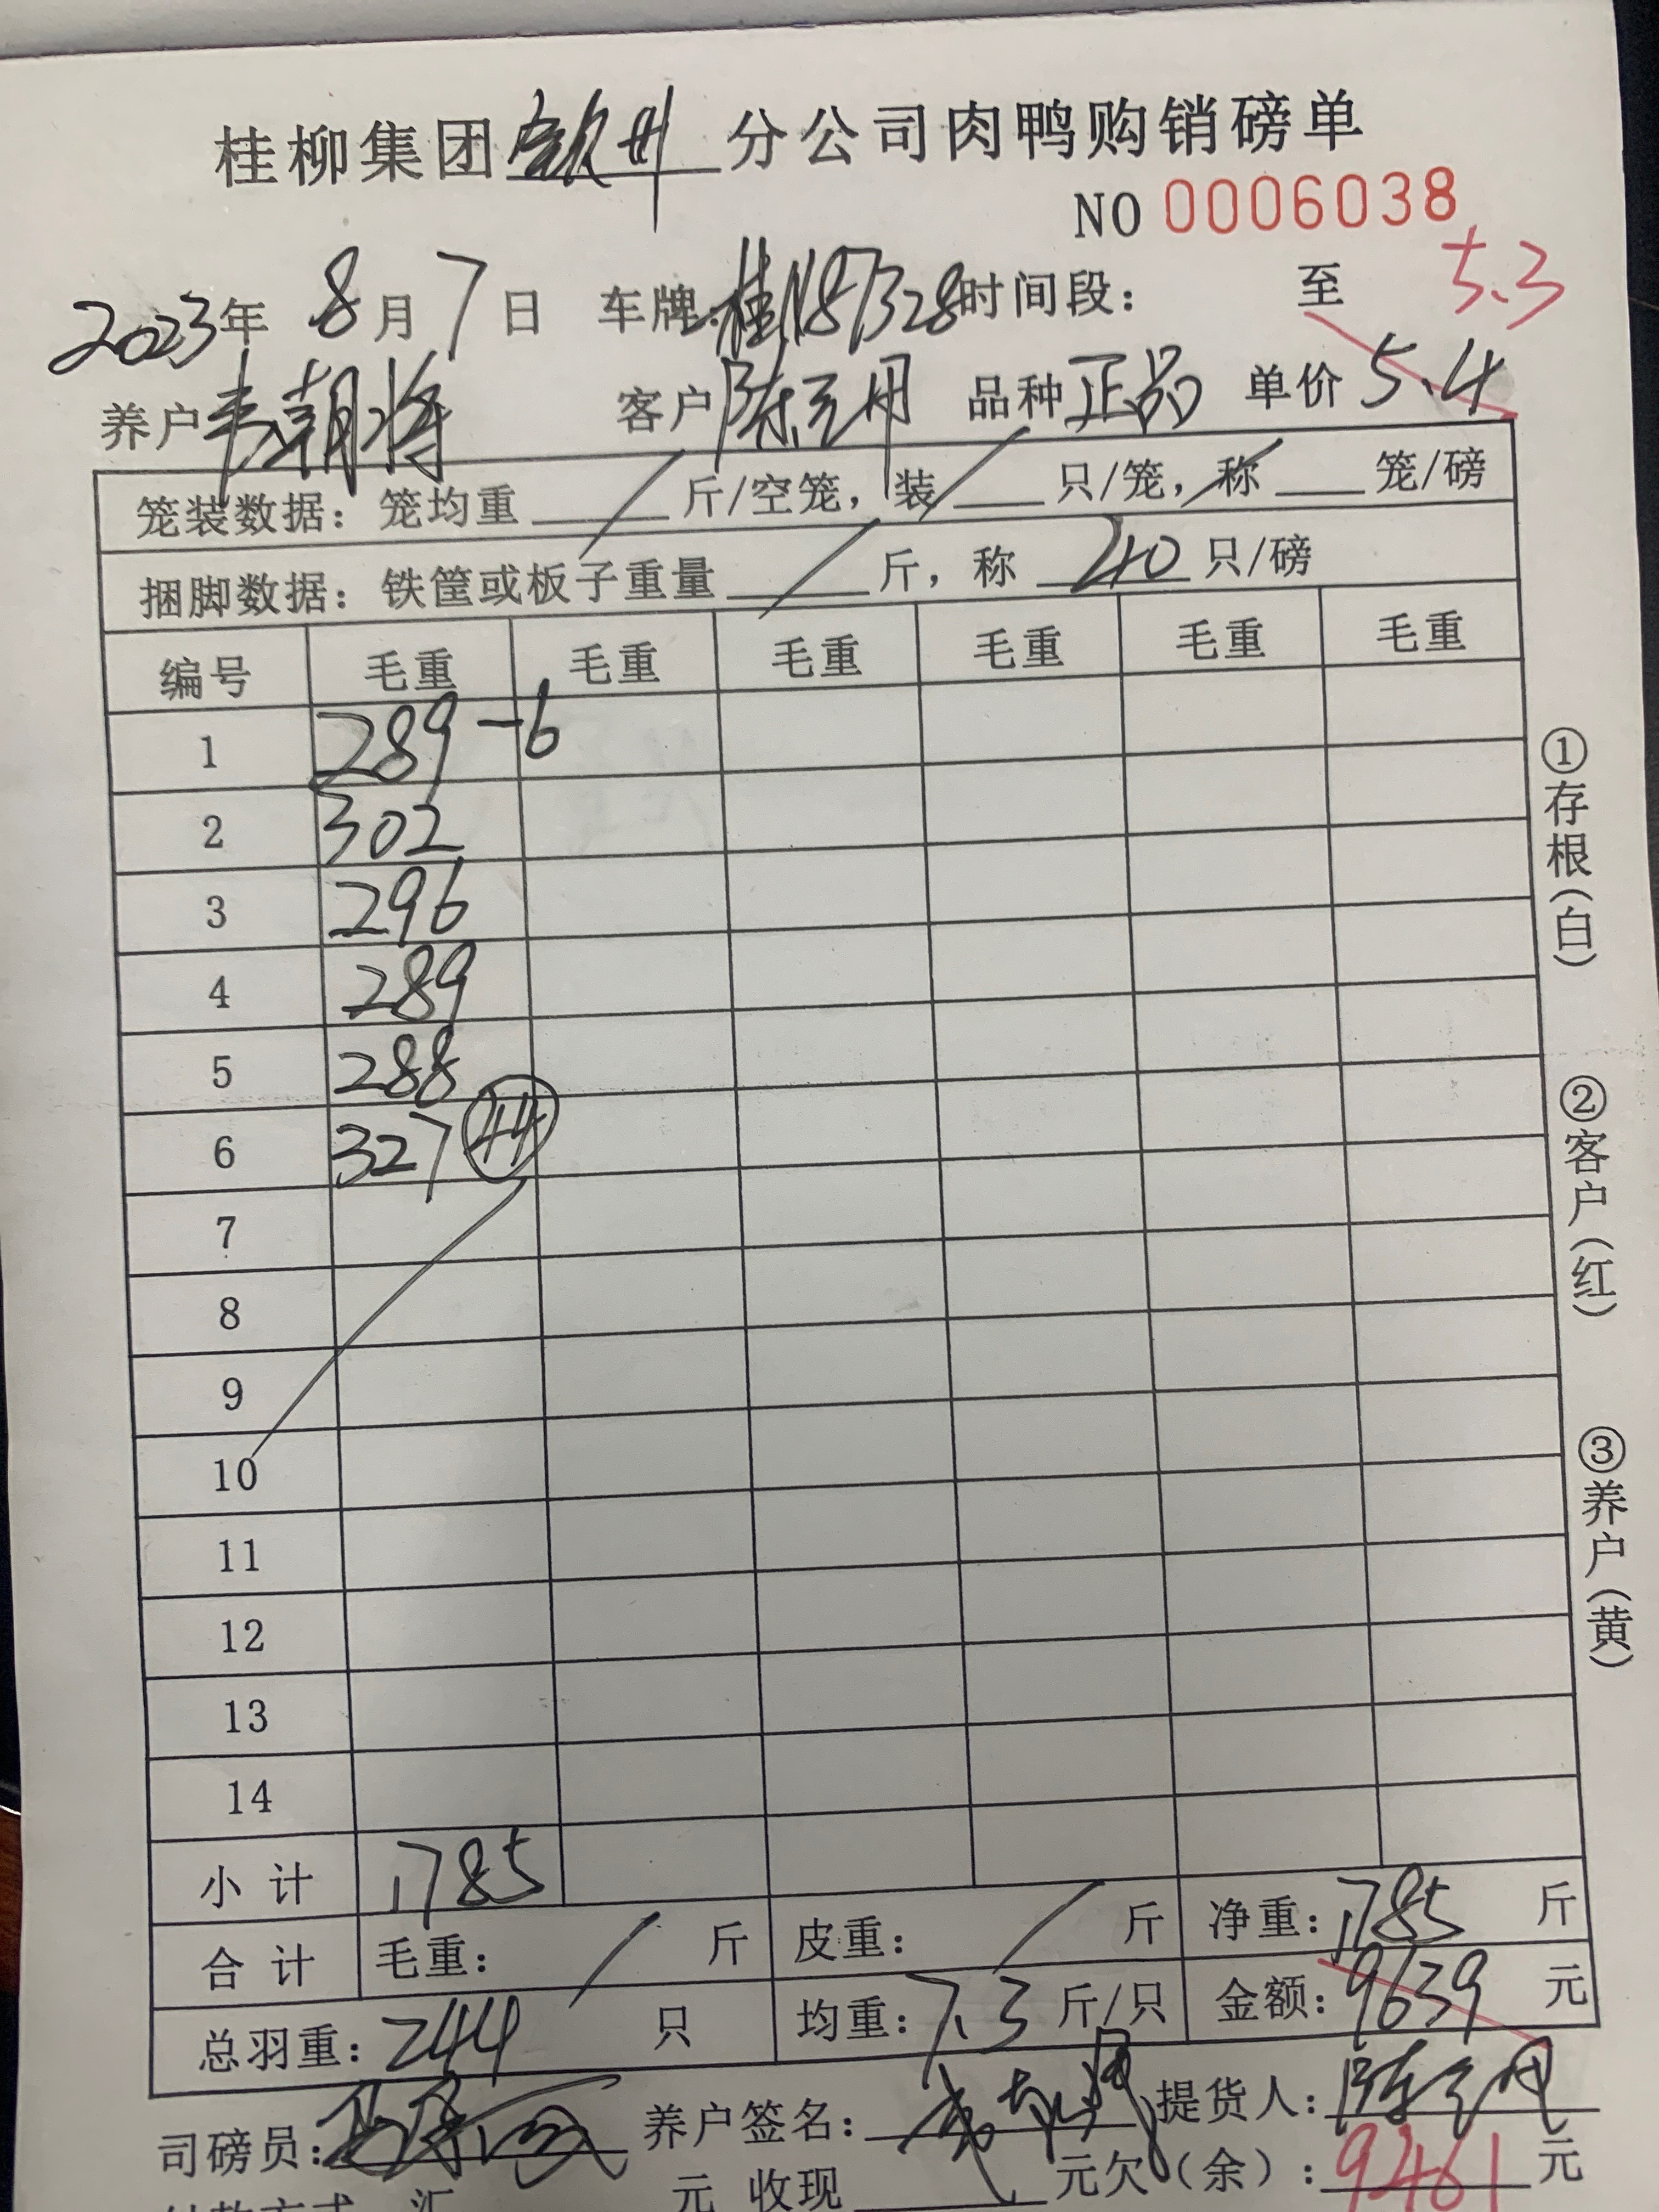 桂柳集团钦州分公司肉鸭购销磅单
NO 0006038
5.3
2023年 8月7日 车牌:桂N87328时间段: 至
养户韦朝将 客户陈云丹 品种正品 单价5.4
笼装数据:笼均重 斤/空笼,装 只/笼,称 笼/磅
捆脚数据:铁筐或板子重量 斤,称 240 只/磅
编号 毛重 毛重 毛重 毛重 毛重 毛重
1 289-6
2 302
3 296
4 289
5 288
6 327 44
7
8
9
10
11
12
13
14
小计 1785
合计 毛重: 斤 皮重: 斤 净重:1785 斤
总羽重:244 只 均重:7.3斤/只 金额:9639 元
司磅员: 养户签名: 提货人:
元 收现 元欠(余):9461元
付款方式 汇
①存根(白)
②客户(红)
③养户(黄)